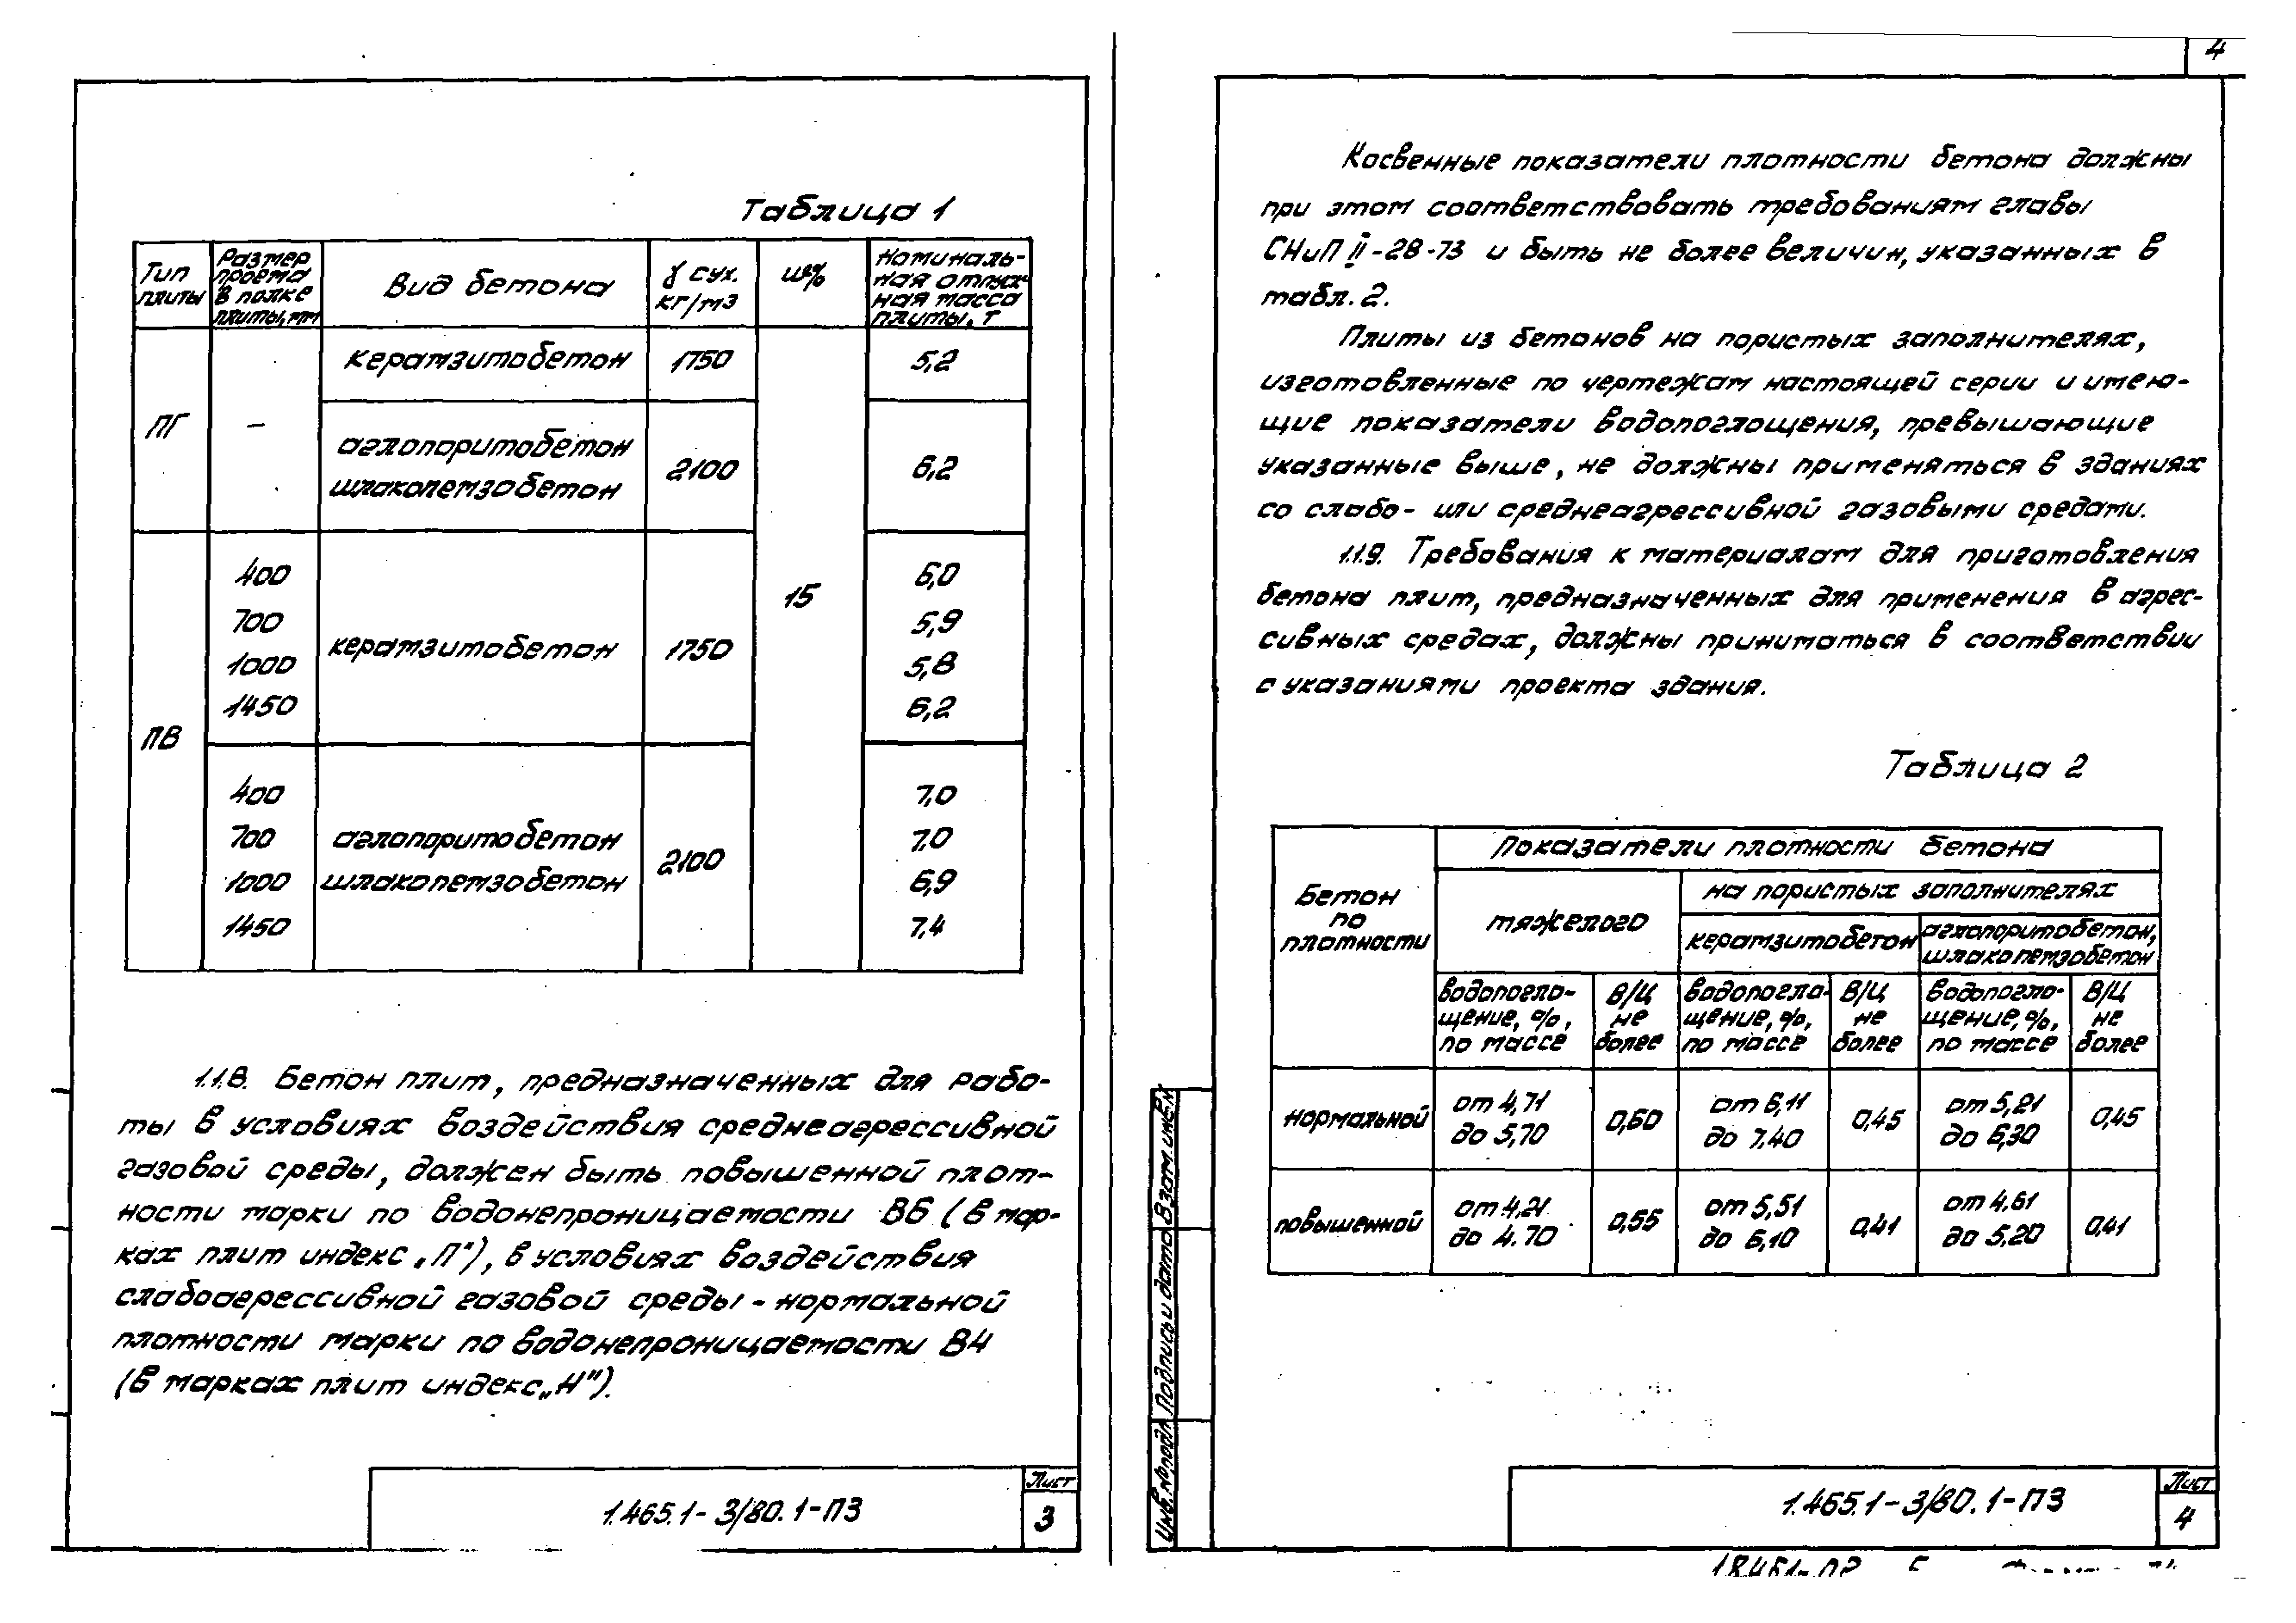 Таблица 1
Тип плиты
Размер проема в полке плиты, мм
Вид бетона
γ сух. кг/м3
ω%
Номиналь-ная отпуск-ная масса плиты, т
ПГ
–
керамзитобетон 1750 5,2
аглопоритобетон
шлакопемзобетон
2100 6,2
15
ПВ
400 6,0
700 5,9
керамзитобетон 1750
1000 5,8
1450 6,2
400 7,0
700 аглопоритобетон 7,0
2100
1000 шлакопемзобетон 6,9
1450 7,4
1.1.8. Бетон плит, предназначенных для рабо-
ты в условиях воздействия среднеагрессивной
газовой среды, должен быть повышенной плот-
ности марки по водонепроницаемости В6 (в мар-
ках плит индекс „П"), в условиях воздействия
слабоагрессивной газовой среды - нормальной
плотности марки по водонепроницаемости В4
(в марках плит индекс „Н").
1.465.1-3/80.1-ПЗ
Лист
3
4
Косвенные показатели плотности бетона должны
при этом соответствовать требованиям главы
СНиП II-28-73 и быть не более величин, указанных в
табл. 2.
Плиты из бетонов на пористых заполнителях,
изготовленные по чертежам настоящей серии и имею-
щие показатели водопоглощения, превышающие
указанные выше, не должны применяться в зданиях
со слабо- или среднеагрессивной газовыми средами.
1.1.9. Требования к материалам для приготовления
бетона плит, предназначенных для применения в агрес-
сивных средах, должны приниматься в соответствии
с указаниями проекта здания.
Таблица 2
Бетон по плотности
Показатели плотности бетона
тяжелого
на пористых заполнителях
керамзитобетон
аглопоритобетон, шлакопемзобетон
водопогло-щение, %, по массе
В/Ц не более
водопогло-щение, %, по массе
В/Ц не более
водопогло-щение, %, по массе
В/Ц не более
нормальной от 4,71 до 5,70 0,60 от 6,11 до 7,40 0,45 от 5,21 до 6,30 0,45
повышенной от 4,21 до 4.70 0,55 от 5,51 до 6,10 0,41 от 4,61 до 5,20 0,41
Взам. инв. №
Подпись и дата
Инв. № подл.
1.465.1-3/80.1-ПЗ
Лист
4